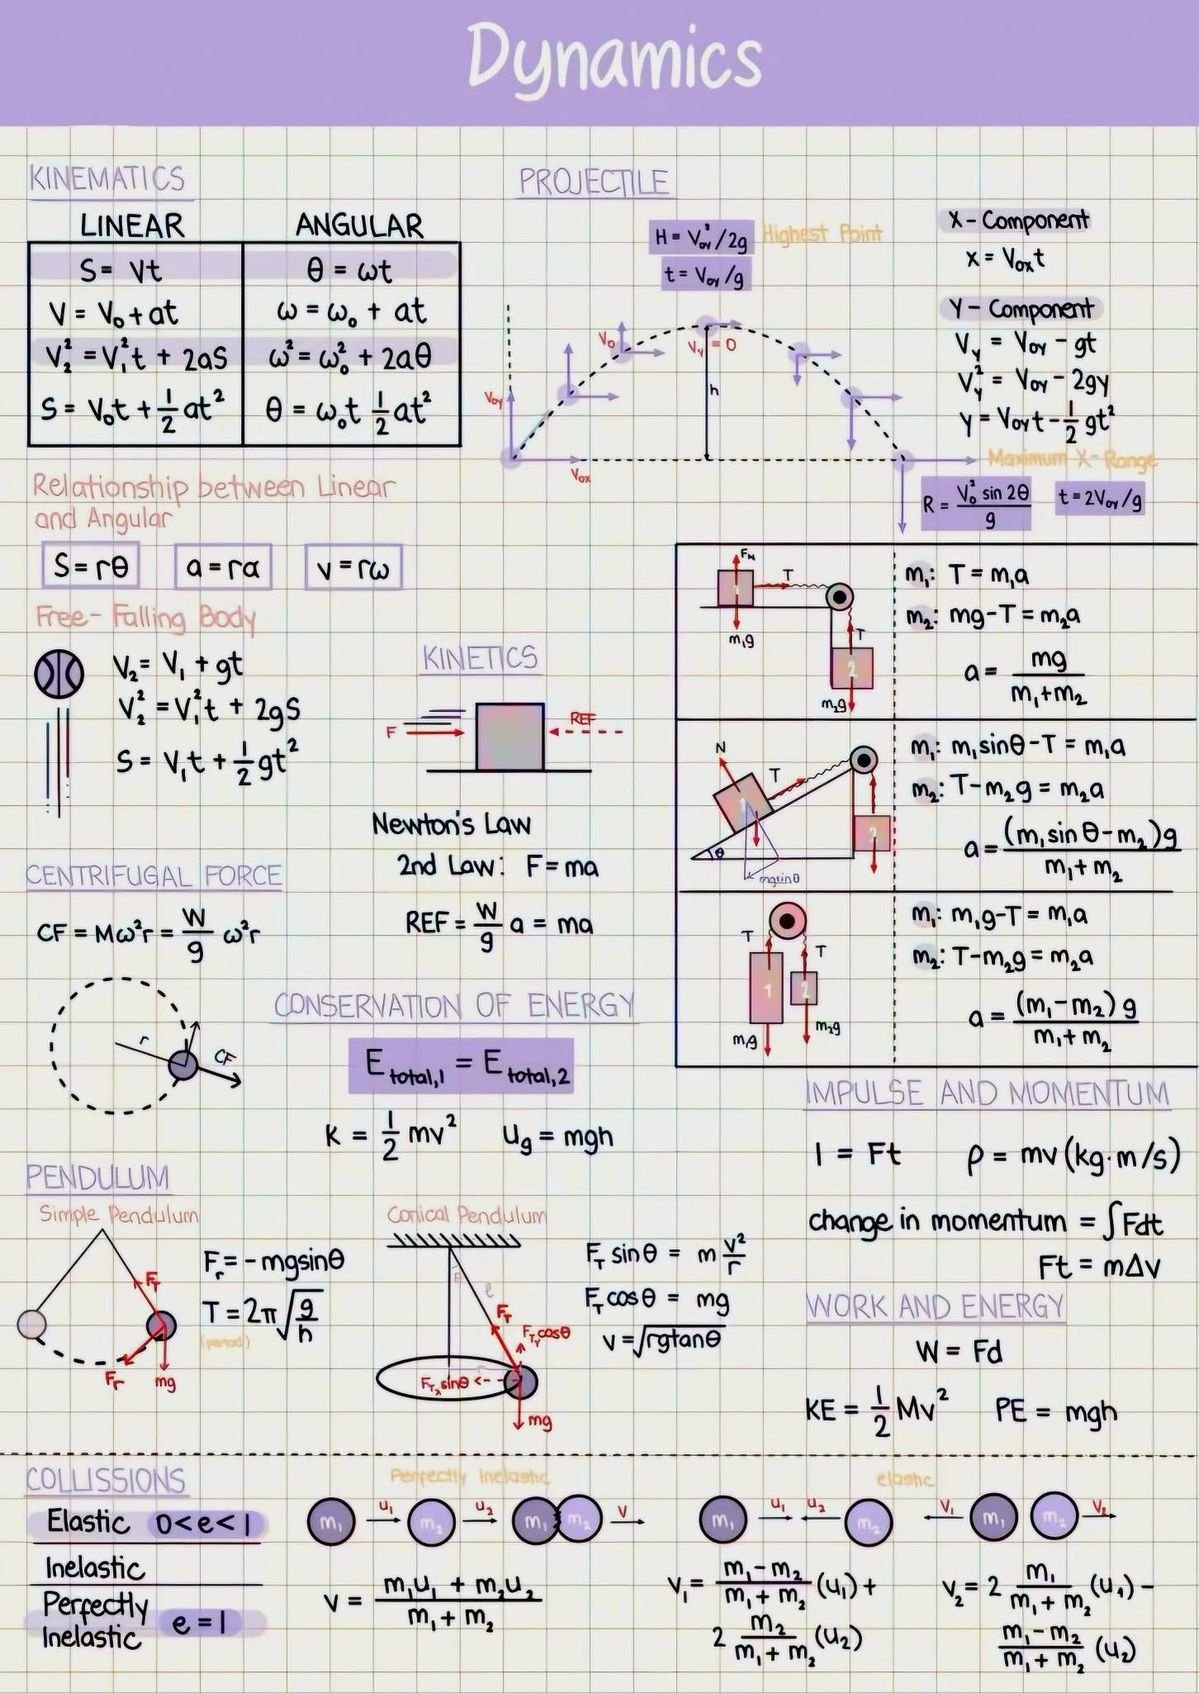 Dynamics
KINEMATICS
LINEAR
ANGULAR
S = Vt
θ = ωt
V = V₀ + at
ω = ω₀ + at
V₂² = V₁²t + 2aS
ω² = ω₀² + 2aθ
S = V₀t + 1/2 at²
θ = ω₀t 1/2 at²
Relationship between Linear
and Angular
S = rθ
a = rα
v = rω
Free-Falling Body
V₂ = V₁ + gt
V₂² = V₁²t + 2gS
S = V₁t + 1/2 gt²
PROJECTILE
H = V₀y²/2g
Highest Point
t = V₀y/g
V₀
Vy = 0
V₀y
h
V₀x
X-Component
x = V₀xt
Y-Component
Vy = V₀y - gt
Vy² = V₀y - 2gy
y = V₀yt - 1/2 gt²
Maximum X-Range
R = V₀² sin 2θ / g
t = 2V₀y/g
KINETICS
F
REF
Newton's Law
2nd Law: F = ma
REF = W/g a = ma
F_N
T
1
m₁g
T
2
m₂g
m₁: T = m₁a
m₂: mg - T = m₂a
a = mg / m₁+m₂
N
T
1
θ
mgsinθ
m₁: m₁sinθ - T = m₁a
m₂: T - m₂g = m₂a
a = (m₁sinθ - m₂)g / m₁+m₂
T
T
1
2
m₁g
m₂g
m₁: m₁g - T = m₁a
m₂: T - m₂g = m₂a
a = (m₁ - m₂)g / m₁+m₂
CENTRIFUGAL FORCE
CF = Mω²r = W/g ω²r
r
CF
CONSERVATION OF ENERGY
E total,1 = E total,2
K = 1/2 mv²
Ug = mgh
IMPULSE AND MOMENTUM
I = Ft
ρ = mv (kg·m/s)
change in momentum = ∫Fdt
Ft = mΔv
PENDULUM
Simple Pendulum
F_T
F_r
mg
F_r = -mgsinθ
T = 2π√(g/h)
(period)
Conical Pendulum
ℓ
F_T
F_Ty cosθ
F_Tx sinθ
mg
F_T sinθ = m v²/r
F_T cosθ = mg
v = √rgtanθ
WORK AND ENERGY
W = Fd
KE = 1/2 Mv²
PE = mgh
COLLISSIONS
Elastic 0<e<1
Inelastic
Perfectly
Inelastic
e = 1
Perfectly Inelastic
m₁
u₁
m₂
u₂
m₁
m₂
V
V = m₁u₁ + m₂u₂ / m₁ + m₂
elastic
m₁
u₁
u₂
m₂
V₁
m₁
m₂
V₂
V₁ = m₁ - m₂ / m₁ + m₂ (u₁) +
2 m₂ / m₁ + m₂ (u₂)
V₂ = 2 m₁ / m₁ + m₂ (u₁) -
m₁ - m₂ / m₁ + m₂ (u₂)